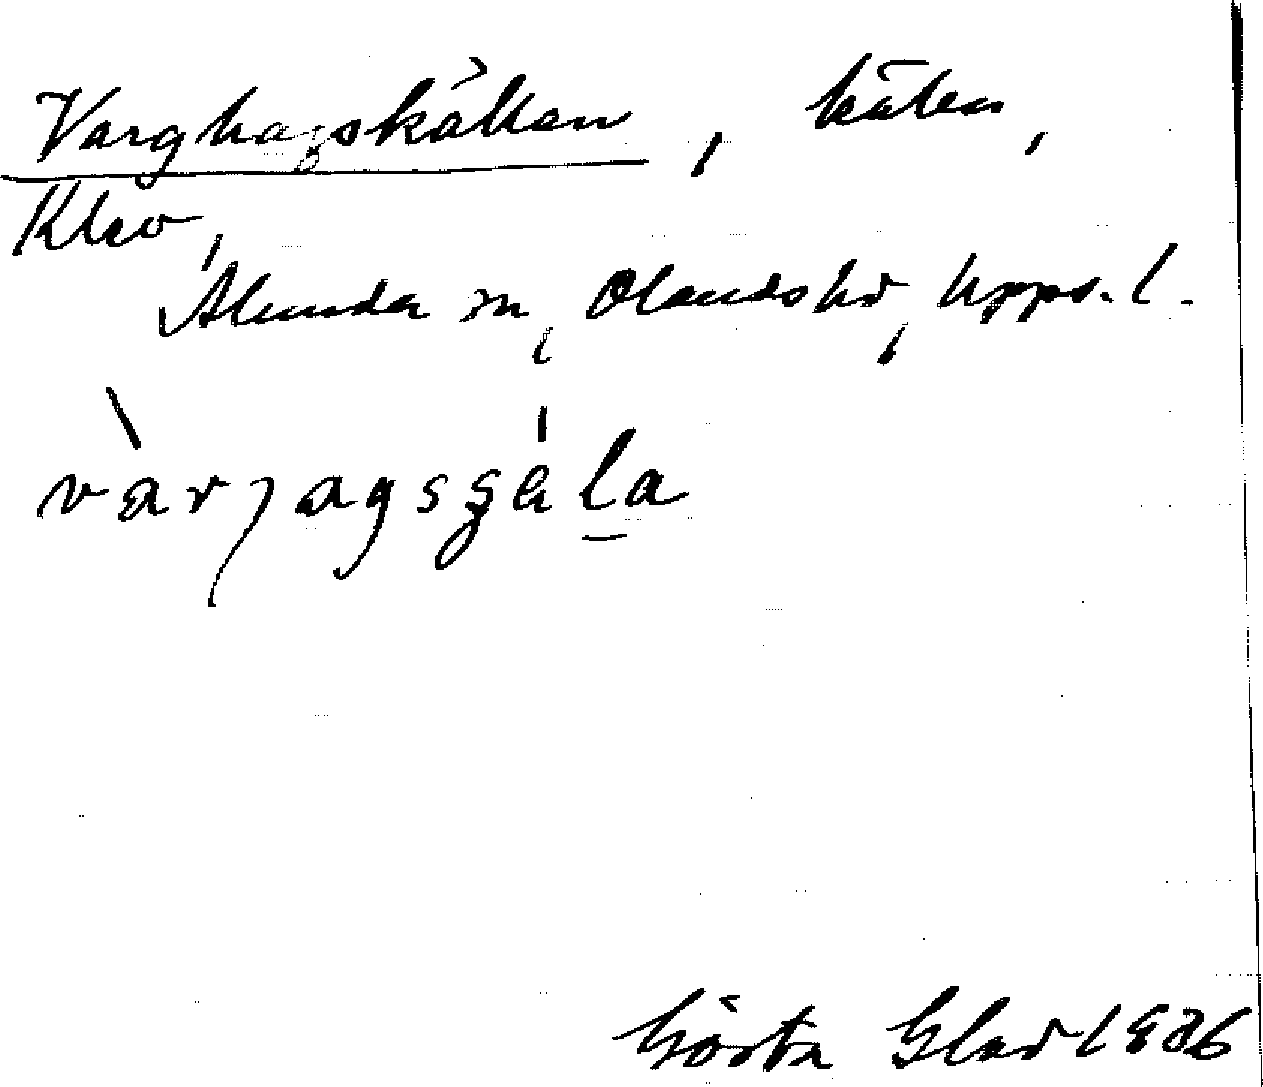 Varghagskällan, källa,
Klev,
Alunda sn, Olands hd, Upps. l.
vàrjagsçä́la
Gösta Glad 1936